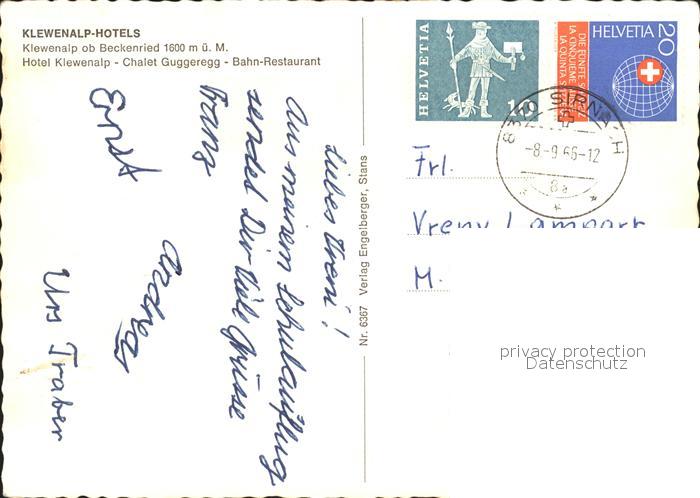 KLEWENALP-HOTELS
Klewenalp ob Beckenried 1600 m ü. M.
Hotel Klewenalp - Chalet Guggeregg - Bahn-Restaurant
Liebes Vreni!
Aus meinem Schulausflug
sendet Dir Viele Grüsse
Franz
Ernst
Andreas
Urs Traber
Nr. 6367 Verlag Engelberger, Stans
HELVETIA
10
DIE FÜNFTE SCHWEIZ
LA CINQUIÈME SUISSE
LA QUINTA SVIZZERA
HELVETIA 20
8370 SIRNACH
-8-9 66-12
8a
Frl.
Vreny Lampart
M.
privacy protection
Datenschutz